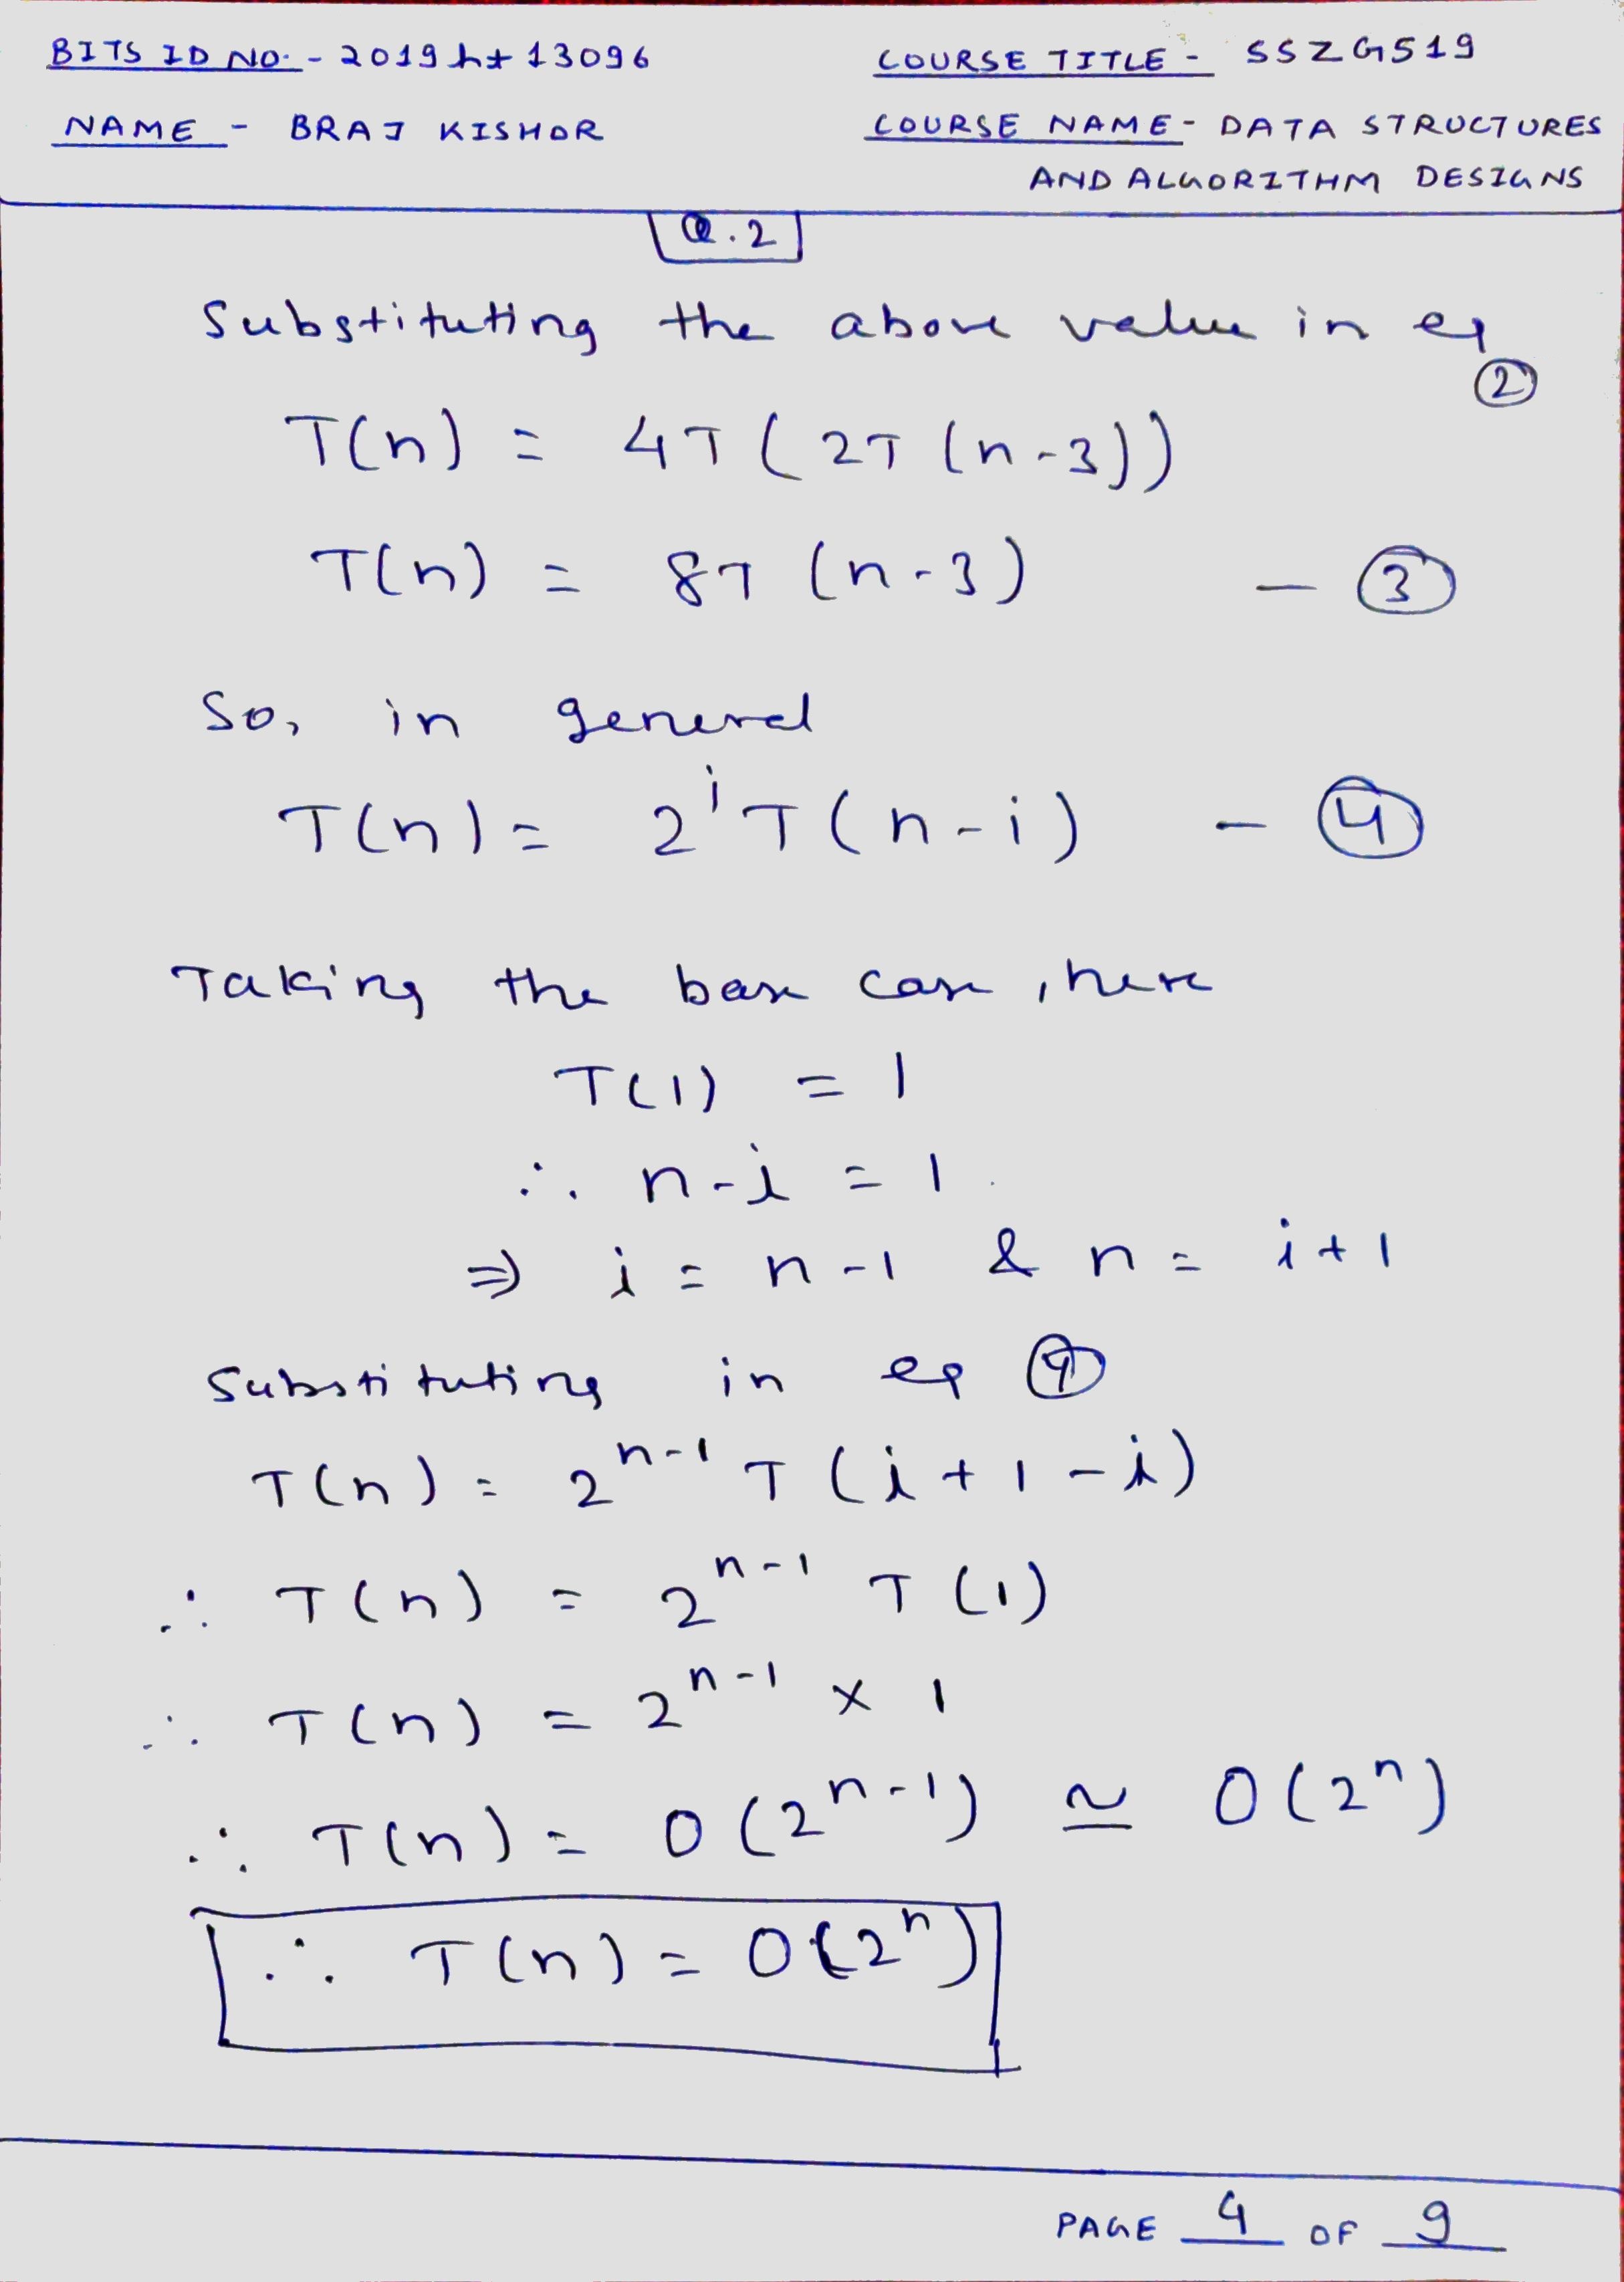 BITS ID NO. - 2019ht13096
COURSE TITLE - SSZG519
NAME - BRAJ KISHOR
COURSE NAME - DATA STRUCTURES
AND ALGORITHM DESIGNS
Q.2
Substituting the above value in eq
②
T(n) = 4T(2T(n-3))
T(n) = 8T(n-3) — ③
So, in general
T(n) = 2ⁱT(n-i) — ④
Taking the base case, here
T(1) = 1
∴ n-i = 1
⇒ i = n-1 & n = i+1
Substituting in eq ④
T(n) = 2ⁿ⁻¹ T(i+1-i)
∴ T(n) = 2ⁿ⁻¹ T(1)
∴ T(n) = 2ⁿ⁻¹ × 1
∴ T(n) = O(2ⁿ⁻¹) ≃ O(2ⁿ)
∴ T(n) = O(2ⁿ)
PAGE 4 OF 9